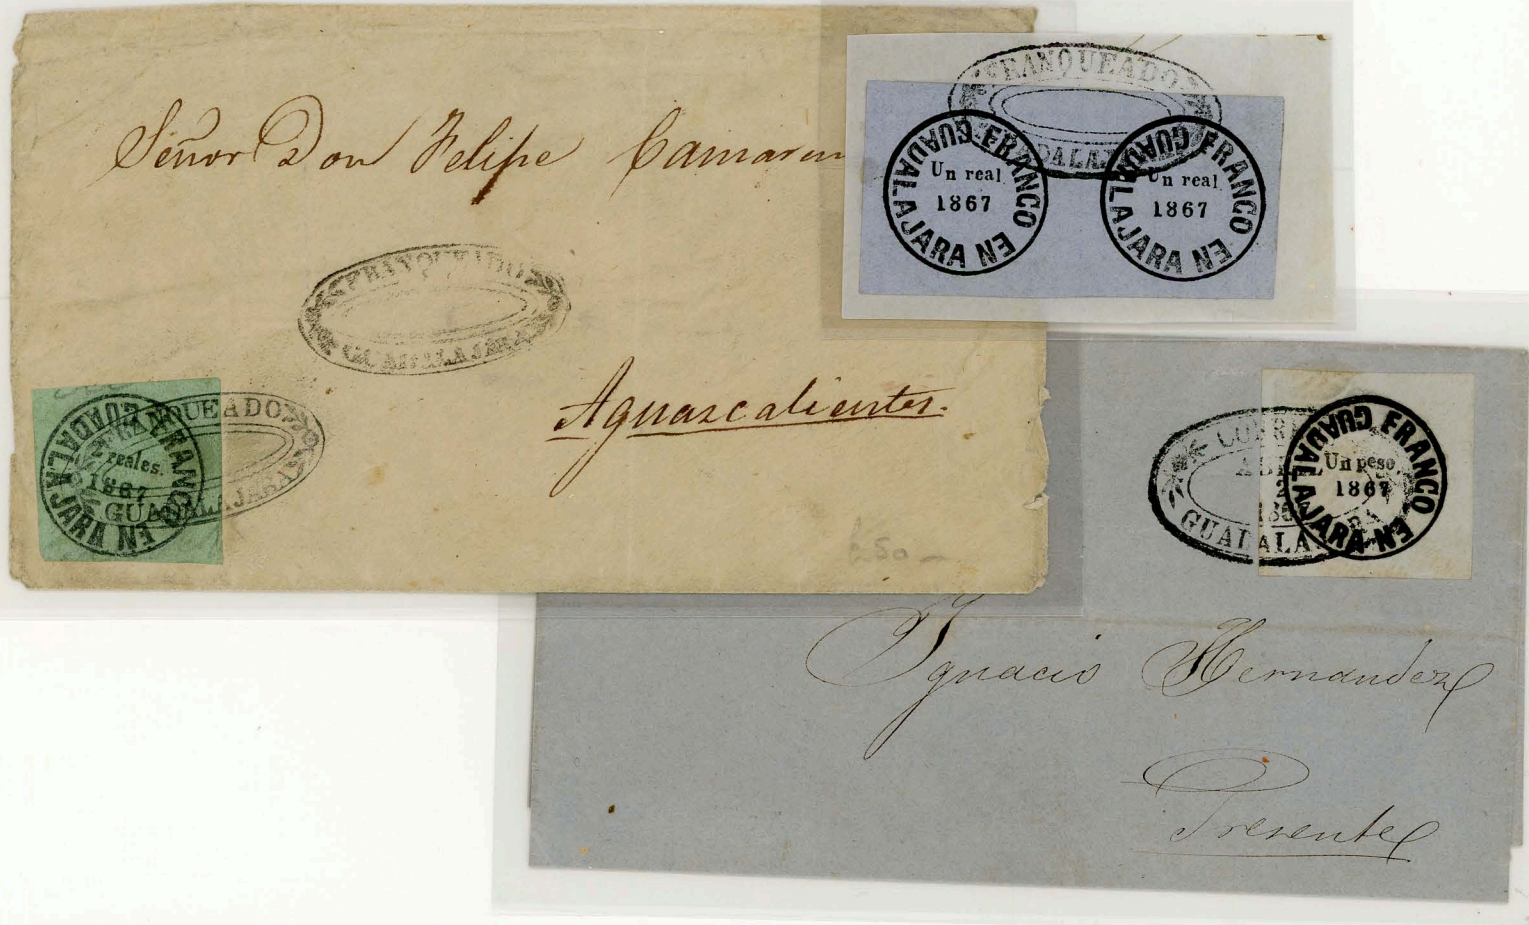 Señor Don Felipe Camaren
FRANQUEADO
GUADALAJARA
Aguascalientes.
FRANQUEADO
GUADALAJARA
FRANCO EN GUADALAJARA
2 reales.
1867
£50-
FRANQUEADO
FRANCO EN GUADALAJARA
Un real
1867
FRANCO EN GUADALAJARA
Un real
1867
GUADALA
FRANCO EN GUADALAJARA
Un peso
1867
Ignacio Hernandez
Presente